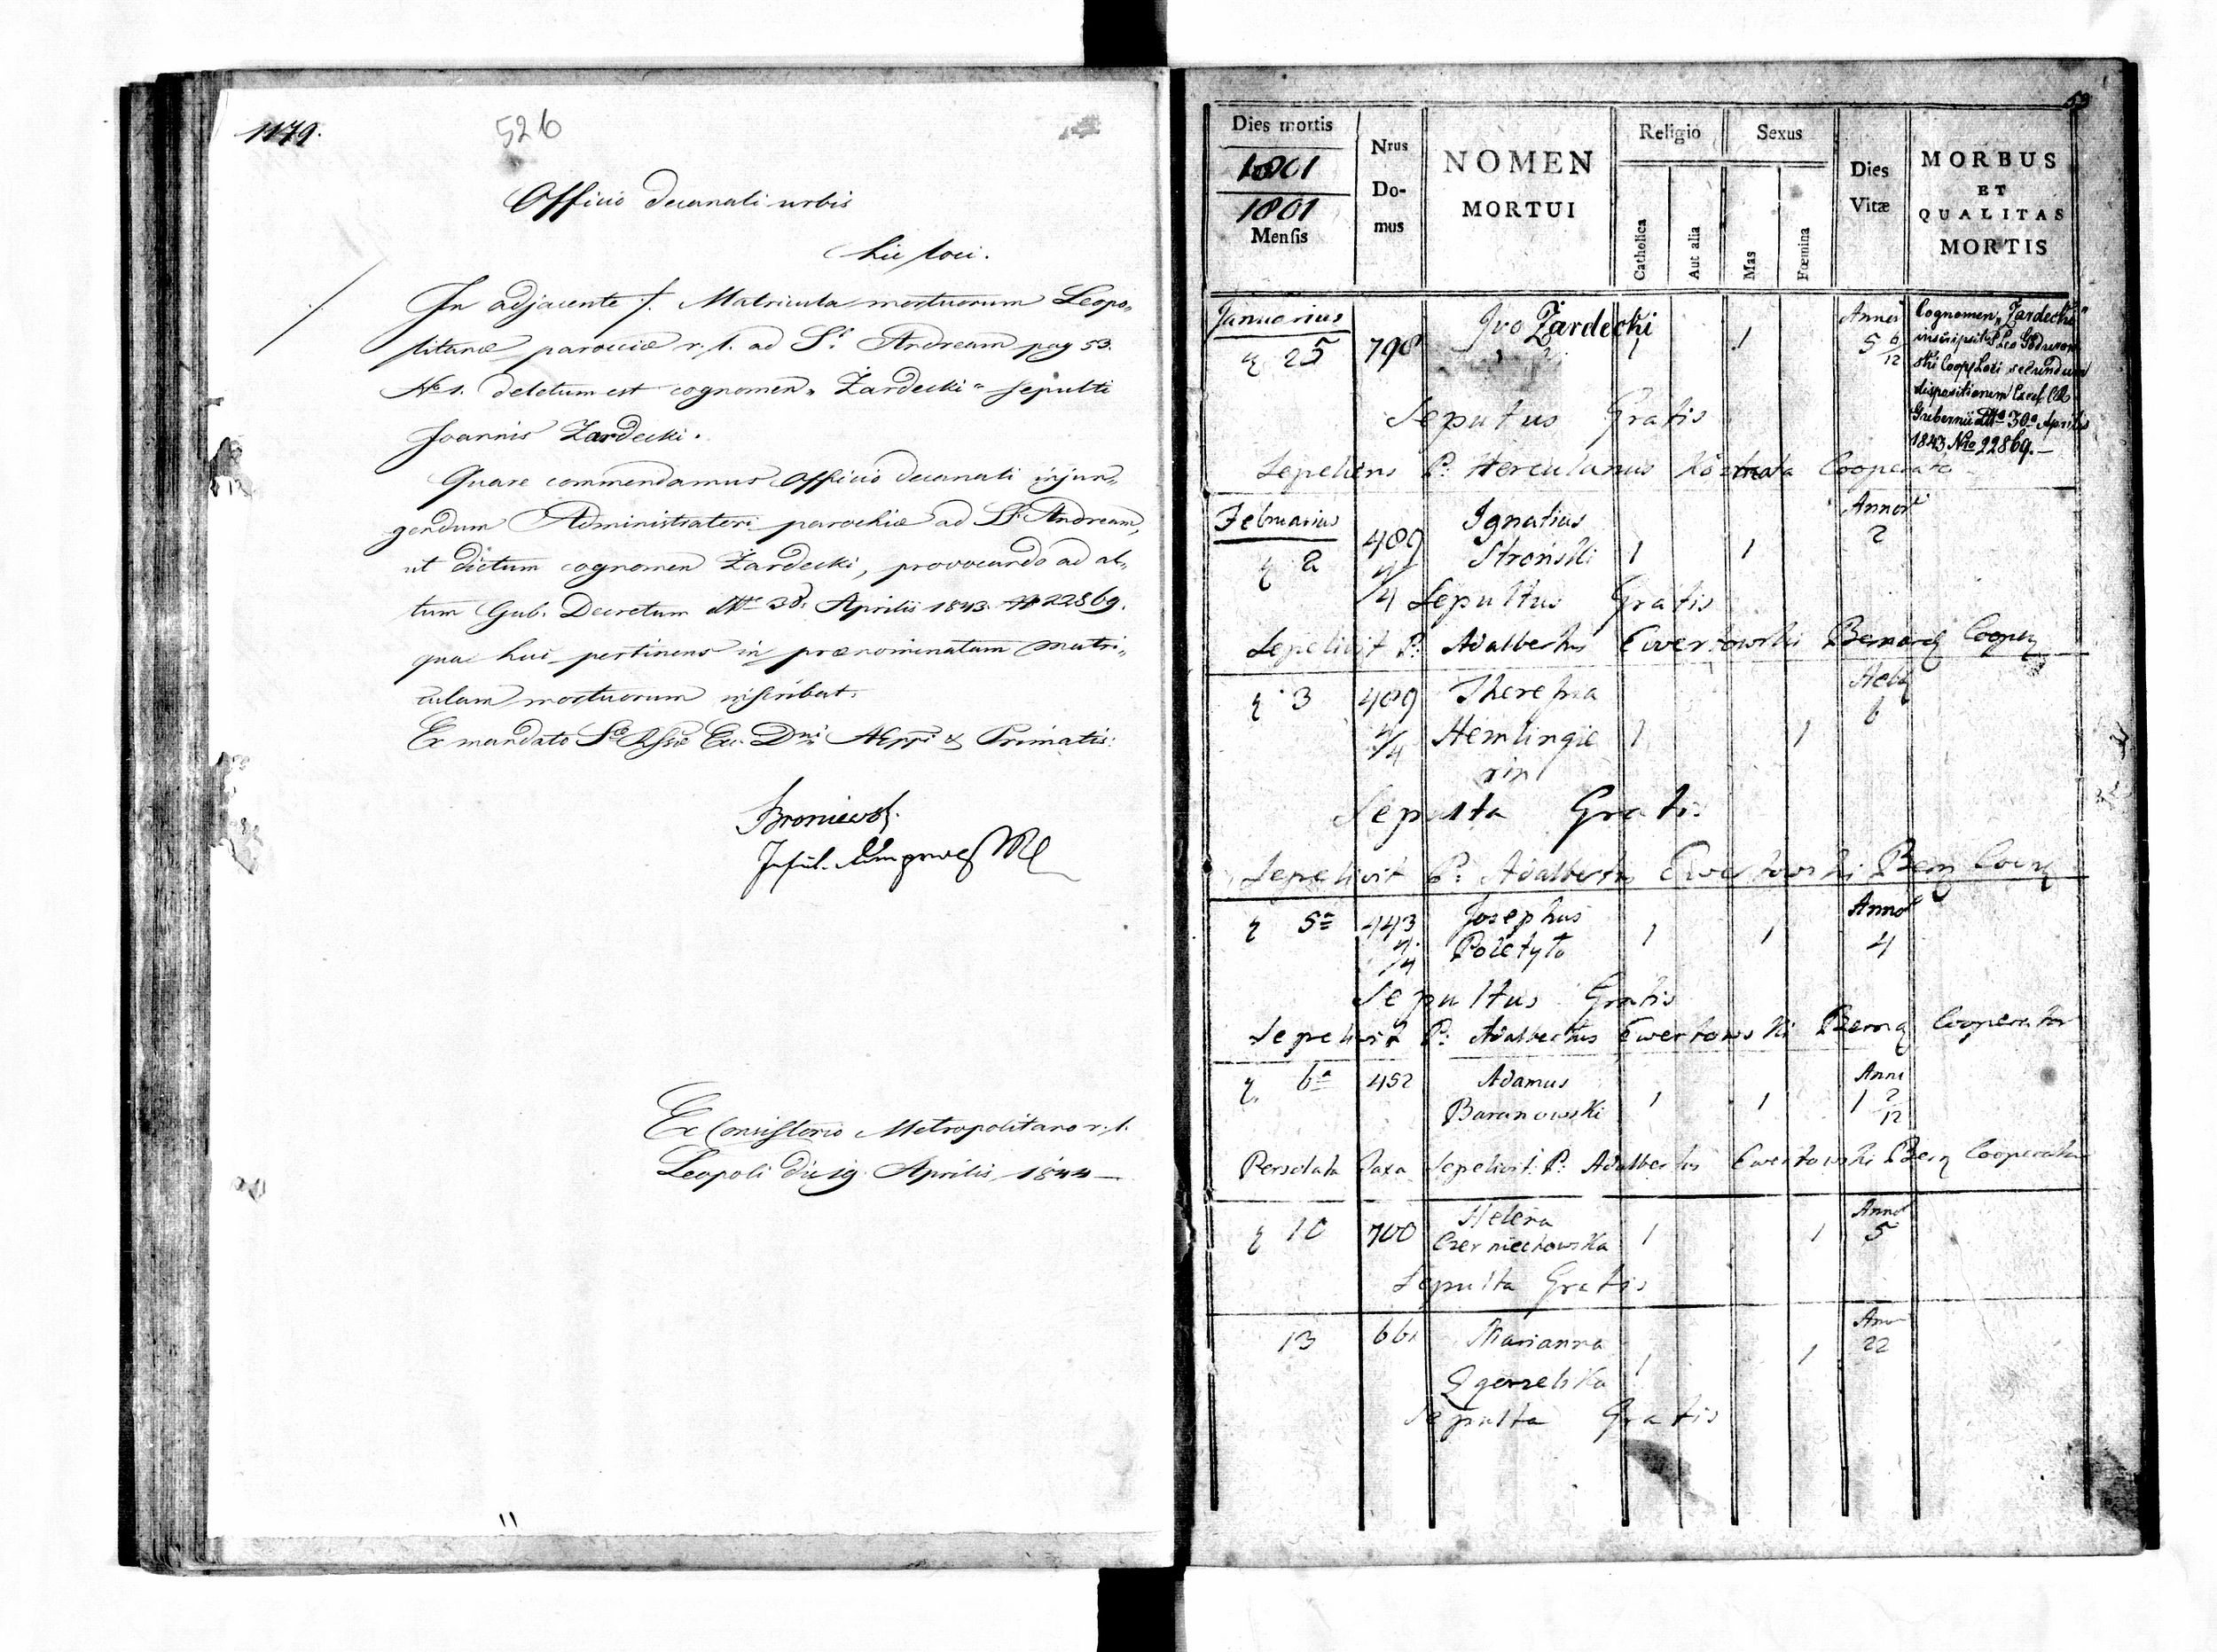 1179.
526
Officio decanali urbis
hic loci.
In adjacente /. Matricula mortuorum Leopo-
litanæ parociæ r. l. ad S. Andream pag 53.
No 1. deletum est cognomen „Żardecki" sepulti
Joannis Żardecki.
Quare commendamus Officio decanali injun-
gendum Administratori parochiæ ad S. Andream,
ut dictum cognomen Żardecki, provocando ad al-
tum Gub. Decretum 30. Aprilis 1843 N 22869.
qua hui pertinens in prænominatam matri-
culam mortuorum inscribat.
Ex mandato
Primatis:
Broniewsk.
Ex Consistorio Metropolitano r. l.
Leopoli die 19 Aprilis 1844
53
Dies mortis
1801
1801
Mensis
Nrus
Do-
mus
NOMEN
MORTUI
Religio
Catholica
Aut alia
Sexus
Mas
Fœmina
Dies
Vitæ
MORBUS
ET
QUALITAS
MORTIS
Januarius
25 798 Ivo Żardecki 1 1 Anno 5 6/12
Cognomen „Żardecki"
inscripsit Leo
Coop Loci secundum
dispositionem Excel
Gubernii 30 Aprilis
1843 Nro 22869.—
Seputus Gratis
Sepeliens P: Herculanus Cooperato
Februarius
2 489 4/4 Ignatius Stroński 1 1 Annor 2
Sepultus Gratis
Sepelivit P: Adalbertus Ewertowski Bernard Cooper
3 489 4/4 Theresia Hemlingie rin 1 1 6
Sepulta Gratis
Sepelivit P: Adalbertus Ewertowski Bern Coop
5ta 443 4/4 Josephus Poletyło 1 1 Anno 4
Sepultus Gratis
Sepelivit P: Adalbertus Ewertowski Bern Cooperator
6ta 452 Adamus Baranowski 1 1 Anni 1 2/12
Persoluta Taxa Sepelivit P: Adalbertus Ewertowski Bern Cooperator
10 700 Helena Czerniechowska 1 1 Anno 5
Sepulta Gratis
13 661 Marianna 1 1 Anno 22
Sepulta Gratis